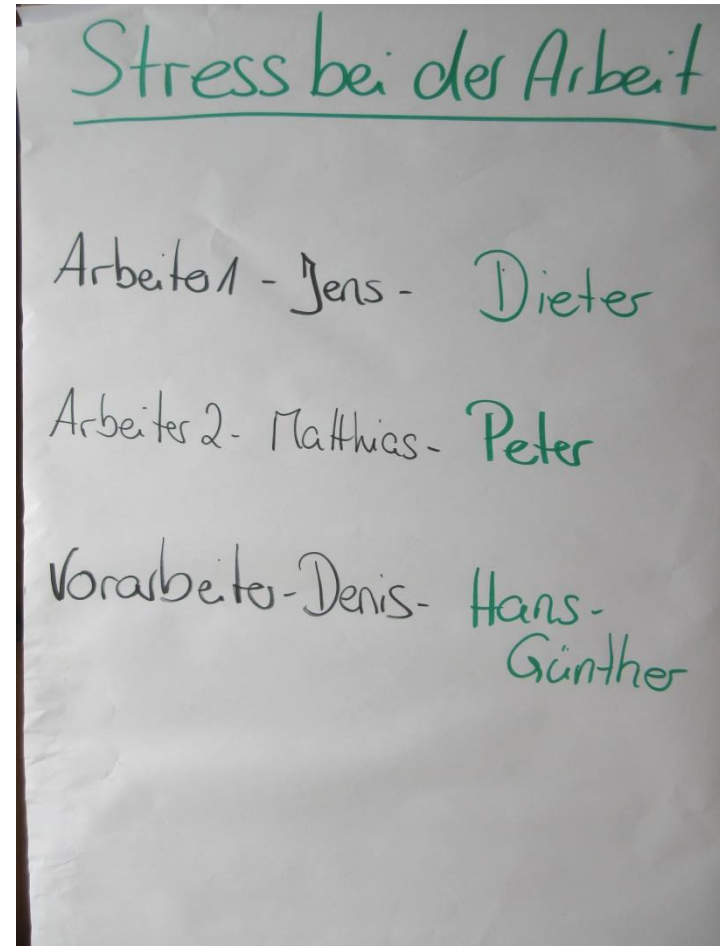 Stress bei der Arbeit
Arbeiter 1 - Jens - Dieter
Arbeiter 2 - Matthias - Peter
Vorarbeiter - Denis - Hans-
Günther